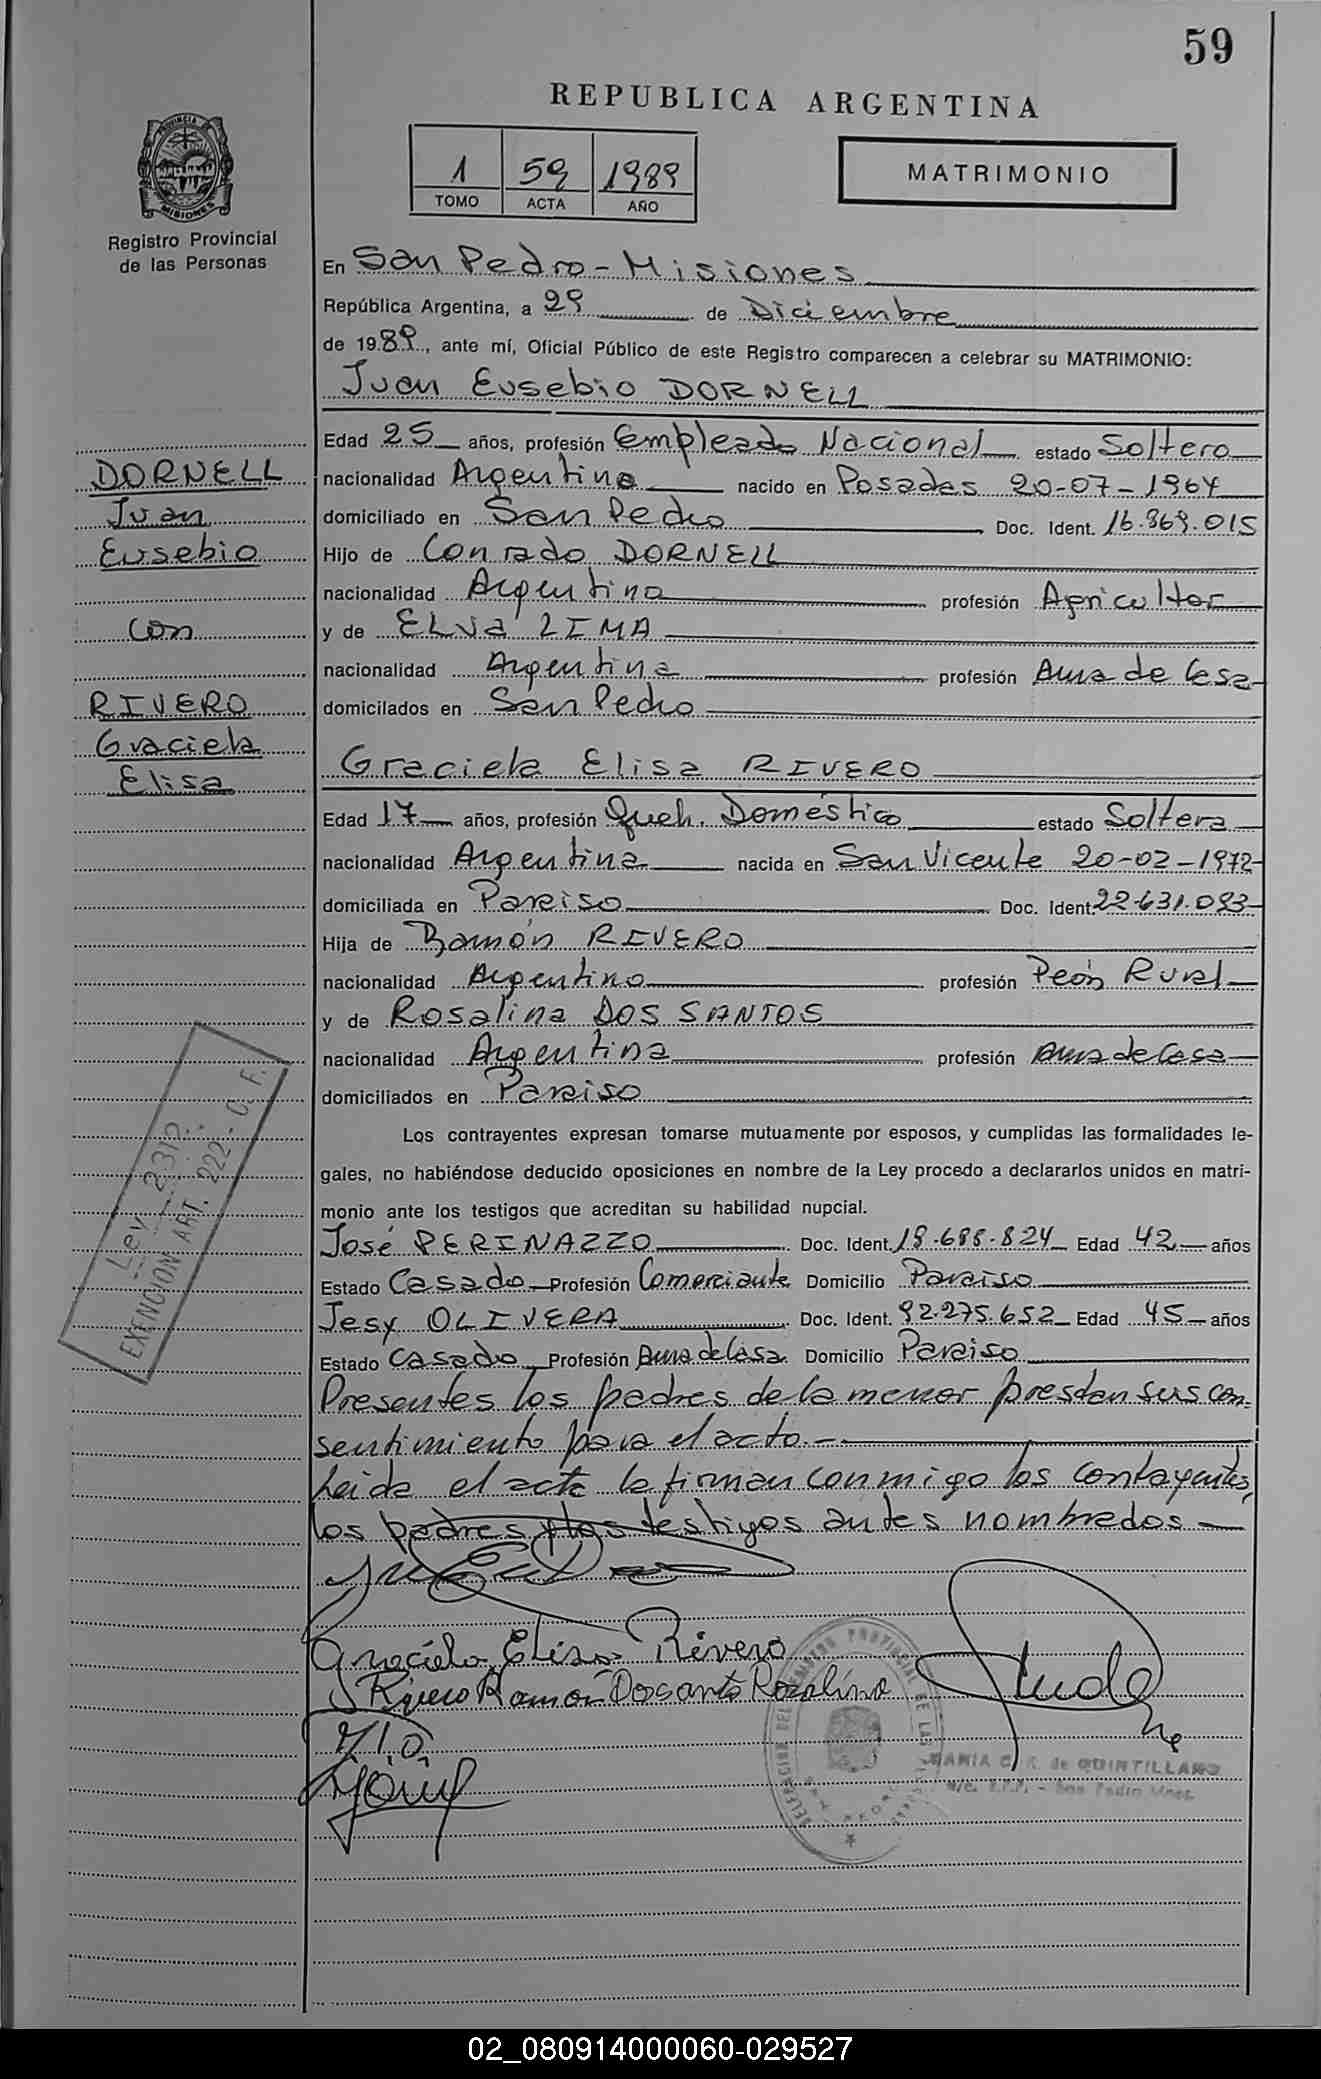 59
REPUBLICA ARGENTINA
PROVINCIA DE
MISIONES
Registro Provincial
de las Personas
1 59 1989
TOMO ACTA AÑO
MATRIMONIO
En San Pedro - Misiones
República Argentina, a 29 de Diciembre
de 1989, ante mí, Oficial Público de este Registro comparecen a celebrar su MATRIMONIO:
Juan Eusebio DORNELL
Edad 25 años, profesión Empleado Nacional estado Soltero
nacionalidad Argentino nacido en Posadas 20-07-1964
domiciliado en San Pedro Doc. Ident. 16.869.015
Hijo de Conrado DORNELL
nacionalidad Argentina profesión Agricultor
y de ELVA LIMA
nacionalidad Argentina profesión Ama de Casa
domicilados en San Pedro
DORNELL
Juan
Eusebio
con
RIVERO
Graciela
Elisa
Graciela Elisa RIVERO
Edad 17 años, profesión Queh. Doméstico estado Soltera
nacionalidad Argentina nacida en San Vicente 20-02-1972
domiciliada en Paraiso Doc. Ident. 22.631.083
Hija de Ramón RIVERO
nacionalidad Argentino profesión Peón Rural
y de Rosalina DOS SANTOS
nacionalidad Argentina profesión Ama de Casa
domiciliados en Paraiso
Los contrayentes expresan tomarse mutuamente por esposos, y cumplidas las formalidades le-
gales, no habiéndose deducido oposiciones en nombre de la Ley procedo a declararlos unidos en matri-
monio ante los testigos que acreditan su habilidad nupcial.
José PERINAZZO Doc. Ident. 18.688.824 Edad 42 años
Estado Casado Profesión Comerciante Domicilio Paraiso
Jesy OLIVERA Doc. Ident. 92.275.652 Edad 45 años
Estado Casado Profesión Ama de Casa Domicilio Paraiso
Presentes los padres de la menor prestan sus con-
sentimiento para el acto.-
Leida el acta la firman conmigo los contayentes,
los padres y los testigos antes nombredos
Ley 2312
EXENCION ART. 222 - C. F.
Graciela Elisa Rivero
Rivero Ramon Dosanto Rozalina
MARIA C. R. de QUINTILLANO
02_080914000060-029527